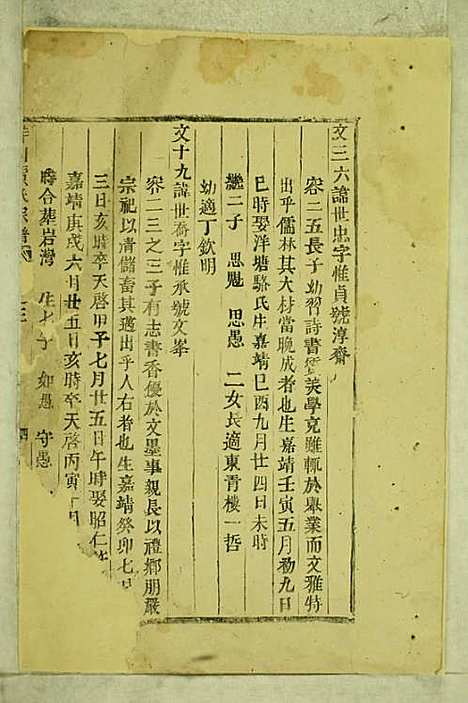 文三六諱世忠字惟貞號淳齋
容二五長子幼習詩書 美學克雖輒於舉業而文雅特
出乎儒林其大材當晚成者也生嘉靖壬寅五月初九日
巳時娶洋塘駱氏生嘉靖己酉九月廿四日未時
二子 思魁 思愚 二女長適東青樓一哲
幼適丁欽明
文十九諱世喬字惟承號文峯
容二三之三子有志書香優於文墨事親長以禮鄉朋嚴
宗祀以清儲畜其邁出乎人右者也生嘉靖癸卯七月
三日亥時卒天啓甲子七月廿五日午時娶昭仁
嘉靖庚戌六月廿五日亥時卒天啓丙寅十月
時合葬岩灣 生 子 如愚 守愚
宗譜